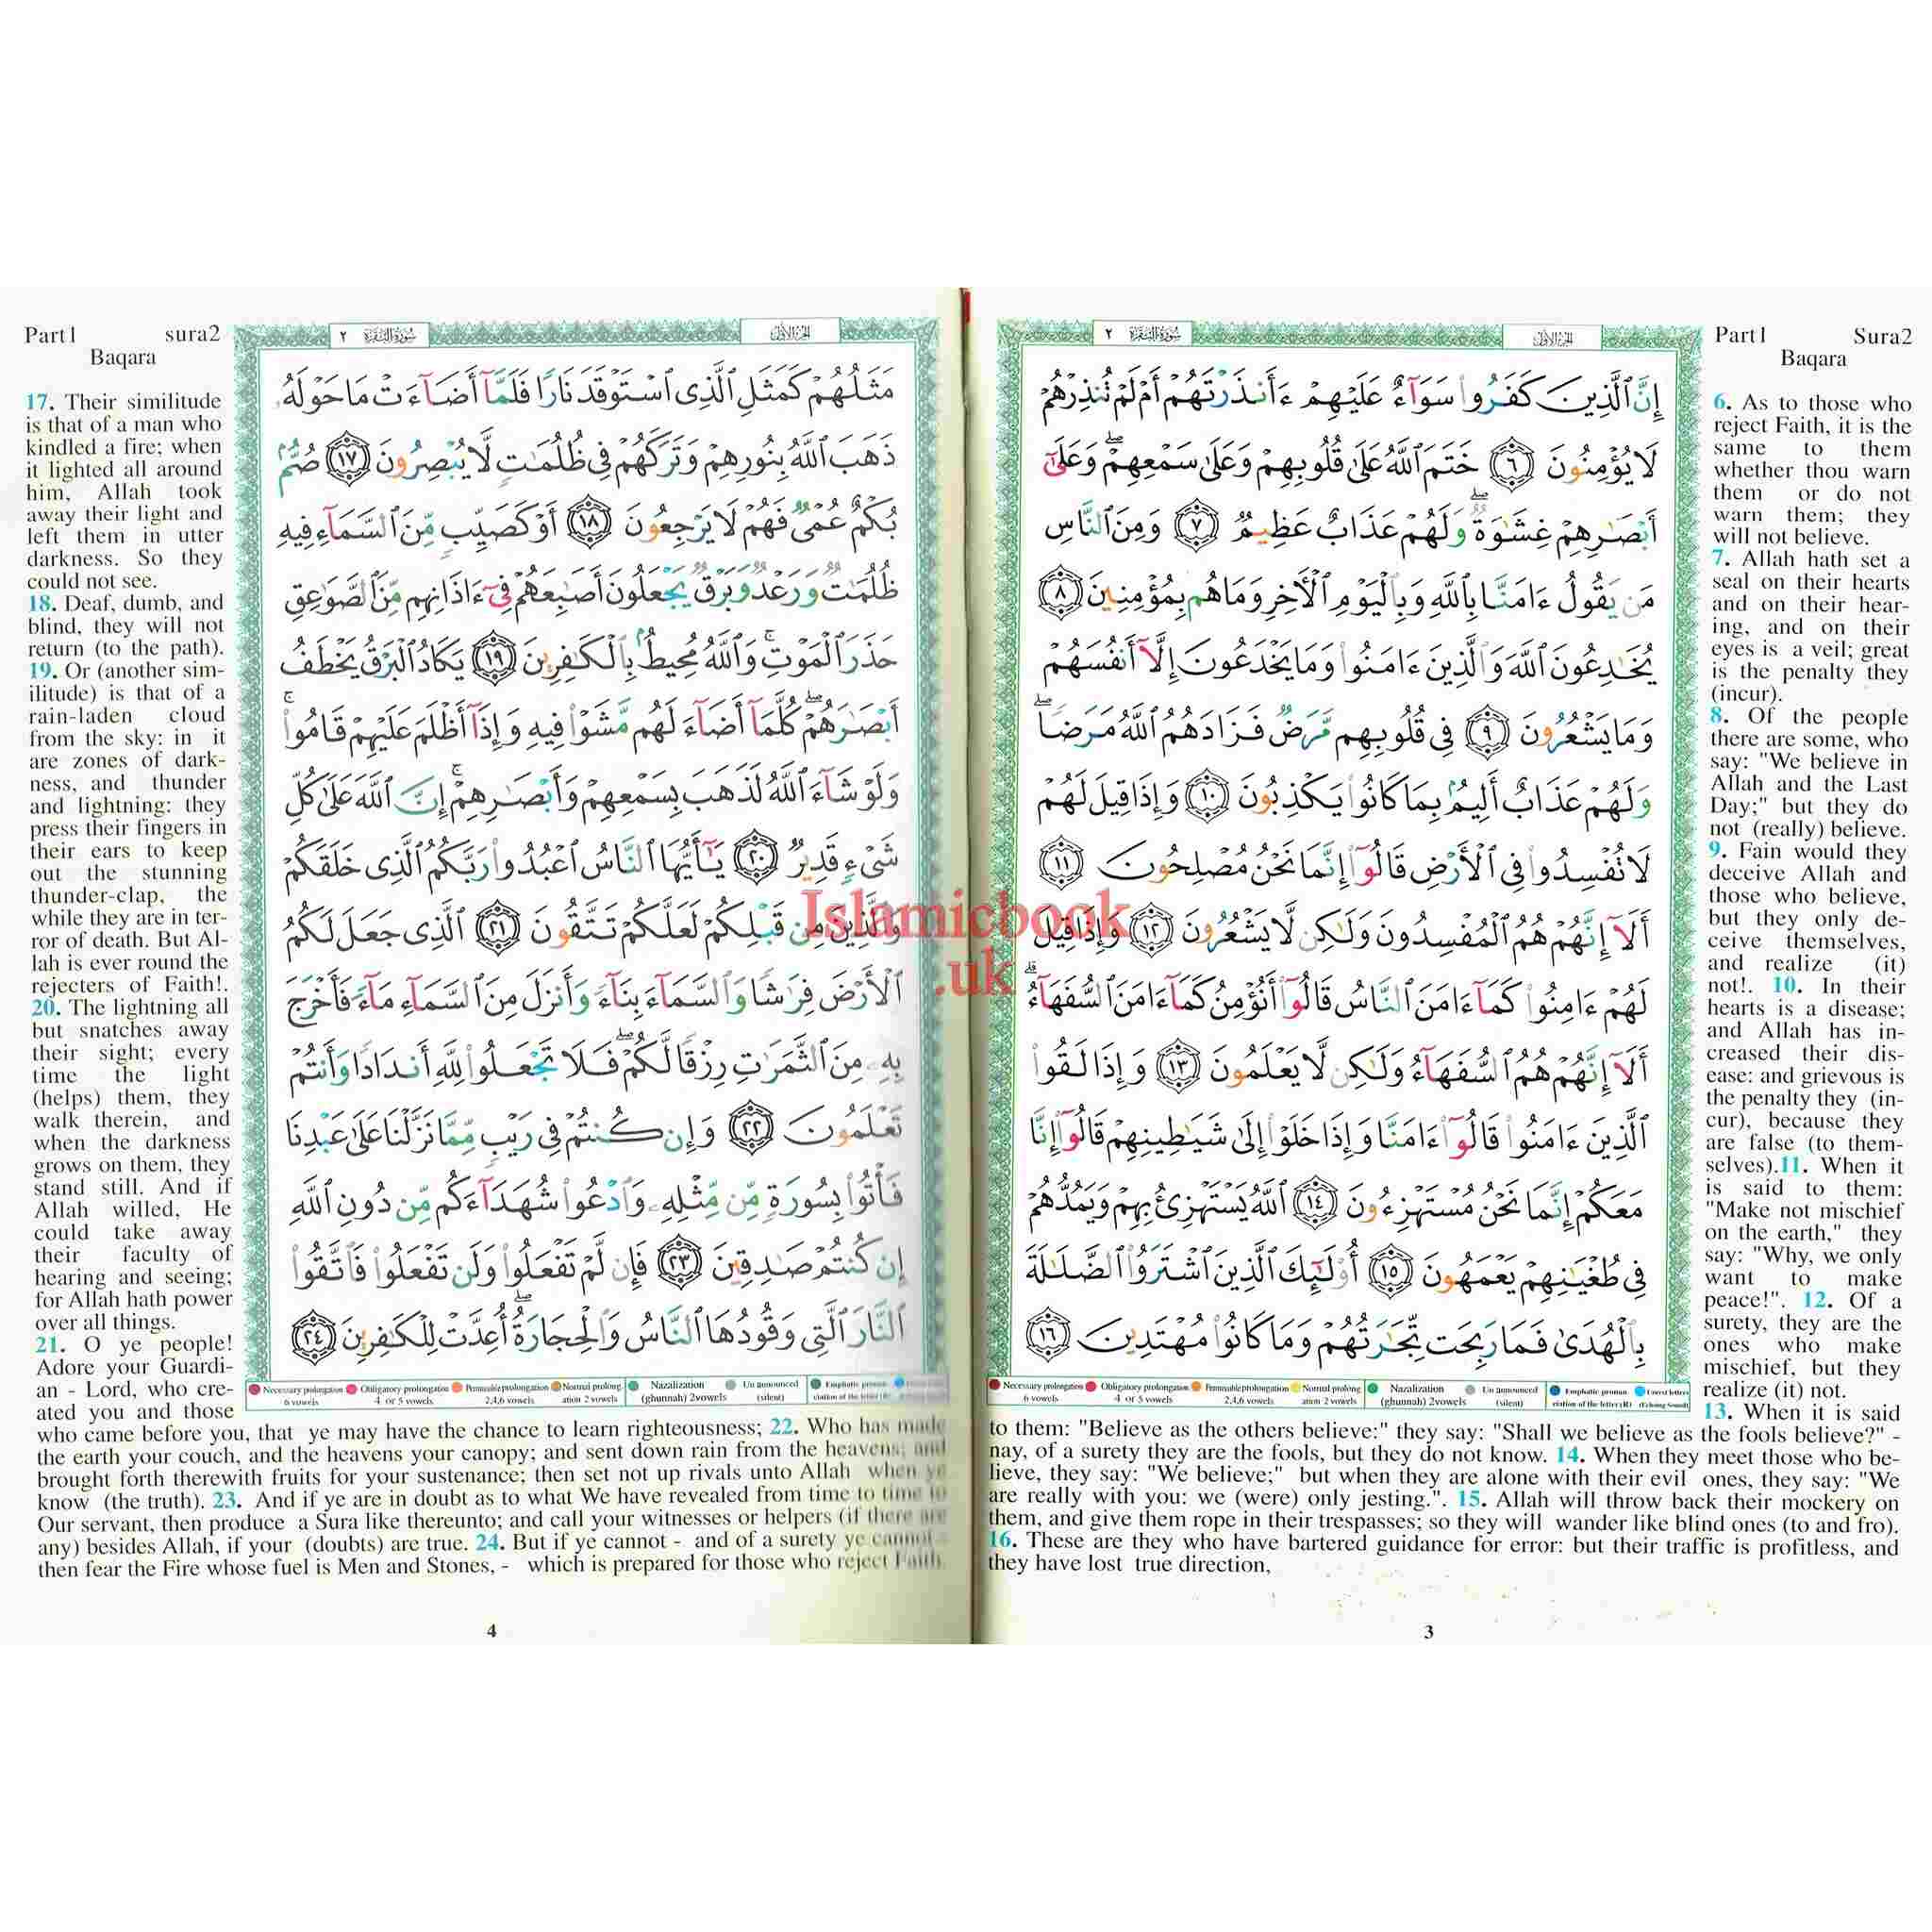 Part1 Sura2
Baqara
الجزء الأول
سورة البقرة ٢
إِنَّ ٱلَّذِينَ كَفَرُوا۟ سَوَآءٌ عَلَيْهِمْ ءَأَنذَرْتَهُمْ أَمْ لَمْ تُنذِرْهُمْ
لَا يُؤْمِنُونَ ٦ خَتَمَ ٱللَّهُ عَلَىٰ قُلُوبِهِمْ وَعَلَىٰ سَمْعِهِمْ ۖ وَعَلَىٰٓ
أَبْصَـٰرِهِمْ غِشَـٰوَةٌ ۖ وَلَهُمْ عَذَابٌ عَظِيمٌ ٧ وَمِنَ ٱلنَّاسِ
مَن يَقُولُ ءَامَنَّا بِٱللَّهِ وَبِٱلْيَوْمِ ٱلْـَٔاخِرِ وَمَا هُم بِمُؤْمِنِينَ ٨
يُخَـٰدِعُونَ ٱللَّهَ وَٱلَّذِينَ ءَامَنُوا۟ وَمَا يَخْدَعُونَ إِلَّآ أَنفُسَهُمْ
وَمَا يَشْعُرُونَ ٩ فِى قُلُوبِهِم مَّرَضٌ فَزَادَهُمُ ٱللَّهُ مَرَضًا ۖ
وَلَهُمْ عَذَابٌ أَلِيمٌۢ بِمَا كَانُوا۟ يَكْذِبُونَ ١٠ وَإِذَا قِيلَ لَهُمْ
لَا تُفْسِدُوا۟ فِى ٱلْأَرْضِ قَالُوٓا۟ إِنَّمَا نَحْنُ مُصْلِحُونَ ١١
أَلَآ إِنَّهُمْ هُمُ ٱلْمُفْسِدُونَ وَلَـٰكِن لَّا يَشْعُرُونَ ١٢ وَإِذَا قِيلَ
لَهُمْ ءَامِنُوا۟ كَمَآ ءَامَنَ ٱلنَّاسُ قَالُوٓا۟ أَنُؤْمِنُ كَمَآ ءَامَنَ ٱلسُّفَهَآءُ ۗ
أَلَآ إِنَّهُمْ هُمُ ٱلسُّفَهَآءُ وَلَـٰكِن لَّا يَعْلَمُونَ ١٣ وَإِذَا لَقُوا۟
ٱلَّذِينَ ءَامَنُوا۟ قَالُوٓا۟ ءَامَنَّا وَإِذَا خَلَوْا۟ إِلَىٰ شَيَـٰطِينِهِمْ قَالُوٓا۟ إِنَّا
مَعَكُمْ إِنَّمَا نَحْنُ مُسْتَهْزِءُونَ ١٤ ٱللَّهُ يَسْتَهْزِئُ بِهِمْ وَيَمُدُّهُمْ
فِى طُغْيَـٰنِهِمْ يَعْمَهُونَ ١٥ أُو۟لَـٰٓئِكَ ٱلَّذِينَ ٱشْتَرَوُا۟ ٱلضَّلَـٰلَةَ
بِٱلْهُدَىٰ فَمَا رَبِحَت تِّجَـٰرَتُهُمْ وَمَا كَانُوا۟ مُهْتَدِينَ ١٦
Necessary prolongation 6 vowels
Obligatory prolongation 4 or 5 vowels
Permissible prolongation 2,4,6 vowels
Normal prolongation 2 vowels
Nazalization (ghunnah) 2vowels
Un announced (silent)
Emphatic pronunciation of the letter (R)
Unrest letters (Echoing Sound)
6. As to those who
reject Faith, it is the
same to them
whether thou warn
them or do not
warn them; they
will not believe.
7. Allah hath set a
seal on their hearts
and on their hear-
ing, and on their
eyes is a veil; great
is the penalty they
(incur).
8. Of the people
there are some, who
say: "We believe in
Allah and the Last
Day;" but they do
not (really) believe.
9. Fain would they
deceive Allah and
those who believe,
but they only de-
ceive themselves,
and realize (it)
not!. 10. In their
hearts is a disease;
and Allah has in-
creased their dis-
ease: and grievous is
the penalty they (in-
cur), because they
are false (to them-
selves).11. When it
is said to them:
"Make not mischief
on the earth," they
say: "Why, we only
want to make
peace!". 12. Of a
surety, they are the
ones who make
mischief, but they
realize (it) not.
13. When it is said
to them: "Believe as the others believe:" they say: "Shall we believe as the fools believe?" -
nay, of a surety they are the fools, but they do not know. 14. When they meet those who be-
lieve, they say: "We believe;" but when they are alone with their evil ones, they say: "We
are really with you: we (were) only jesting.". 15. Allah will throw back their mockery on
them, and give them rope in their trespasses; so they will wander like blind ones (to and fro).
16. These are they who have bartered guidance for error: but their traffic is profitless, and
they have lost true direction,
3
Part1 sura2
Baqara
الجزء الأول
سورة البقرة ٢
مَثَلُهُمْ كَمَثَلِ ٱلَّذِى ٱسْتَوْقَدَ نَارًا فَلَمَّآ أَضَآءَتْ مَا حَوْلَهُۥ
ذَهَبَ ٱللَّهُ بِنُورِهِمْ وَتَرَكَهُمْ فِى ظُلُمَـٰتٍ لَّا يُبْصِرُونَ ١٧ صُمٌّۢ
بُكْمٌ عُمْىٌ فَهُمْ لَا يَرْجِعُونَ ١٨ أَوْ كَصَيِّبٍ مِّنَ ٱلسَّمَآءِ فِيهِ
ظُلُمَـٰتٌ وَرَعْدٌ وَبَرْقٌ يَجْعَلُونَ أَصَـٰبِعَهُمْ فِىٓ ءَاذَانِهِم مِّنَ ٱلصَّوَٰعِقِ
حَذَرَ ٱلْمَوْتِ ۚ وَٱللَّهُ مُحِيطٌۢ بِٱلْكَـٰفِرِينَ ١٩ يَكَادُ ٱلْبَرْقُ يَخْطَفُ
أَبْصَـٰرَهُمْ ۖ كُلَّمَآ أَضَآءَ لَهُم مَّشَوْا۟ فِيهِ وَإِذَآ أَظْلَمَ عَلَيْهِمْ قَامُوا۟ ۚ
وَلَوْ شَآءَ ٱللَّهُ لَذَهَبَ بِسَمْعِهِمْ وَأَبْصَـٰرِهِمْ ۚ إِنَّ ٱللَّهَ عَلَىٰ كُلِّ
شَىْءٍ قَدِيرٌ ٢٠ يَـٰٓأَيُّهَا ٱلنَّاسُ ٱعْبُدُوا۟ رَبَّكُمُ ٱلَّذِى خَلَقَكُمْ
وَٱلَّذِينَ مِن قَبْلِكُمْ لَعَلَّكُمْ تَتَّقُونَ ٢١ ٱلَّذِى جَعَلَ لَكُمُ
ٱلْأَرْضَ فِرَٰشًا وَٱلسَّمَآءَ بِنَآءً وَأَنزَلَ مِنَ ٱلسَّمَآءِ مَآءً فَأَخْرَجَ
بِهِۦ مِنَ ٱلثَّمَرَٰتِ رِزْقًا لَّكُمْ ۖ فَلَا تَجْعَلُوا۟ لِلَّهِ أَندَادًا وَأَنتُمْ
تَعْلَمُونَ ٢٢ وَإِن كُنتُمْ فِى رَيْبٍ مِّمَّا نَزَّلْنَا عَلَىٰ عَبْدِنَا
فَأْتُوا۟ بِسُورَةٍ مِّن مِّثْلِهِۦ وَٱدْعُوا۟ شُهَدَآءَكُم مِّن دُونِ ٱللَّهِ
إِن كُنتُمْ صَـٰدِقِينَ ٢٣ فَإِن لَّمْ تَفْعَلُوا۟ وَلَن تَفْعَلُوا۟ فَٱتَّقُوا۟
ٱلنَّارَ ٱلَّتِى وَقُودُهَا ٱلنَّاسُ وَٱلْحِجَارَةُ ۖ أُعِدَّتْ لِلْكَـٰفِرِينَ ٢٤
Necessary prolongation 6 vowels
Obligatory prolongation 4 or 5 vowels
Permissible prolongation 2,4,6 vowels
Normal prolongation 2 vowels
Nazalization (ghunnah) 2vowels
Un announced (silent)
Emphatic pronunciation of the letter (R)
17. Their similitude
is that of a man who
kindled a fire; when
it lighted all around
him, Allah took
away their light and
left them in utter
darkness. So they
could not see.
18. Deaf, dumb, and
blind, they will not
return (to the path).
19. Or (another sim-
ilitude) is that of a
rain-laden cloud
from the sky: in it
are zones of dark-
ness, and thunder
and lightning: they
press their fingers in
their ears to keep
out the stunning
thunder-clap, the
while they are in ter-
ror of death. But Al-
lah is ever round the
rejecters of Faith!.
20. The lightning all
but snatches away
their sight; every
time the light
(helps) them, they
walk therein, and
when the darkness
grows on them, they
stand still. And if
Allah willed, He
could take away
their faculty of
hearing and seeing;
for Allah hath power
over all things.
21. O ye people!
Adore your Guardi-
an - Lord, who cre-
ated you and those
who came before you, that ye may have the chance to learn righteousness; 22. Who has made
the earth your couch, and the heavens your canopy; and sent down rain from the heavens; and
brought forth therewith fruits for your sustenance; then set not up rivals unto Allah when ye
know (the truth). 23. And if ye are in doubt as to what We have revealed from time to time to
Our servant, then produce a Sura like thereunto; and call your witnesses or helpers (if there are
any) besides Allah, if your (doubts) are true. 24. But if ye cannot - and of a surety ye cannot -
then fear the Fire whose fuel is Men and Stones, - which is prepared for those who reject Faith.
4
Islamicbook
.uk